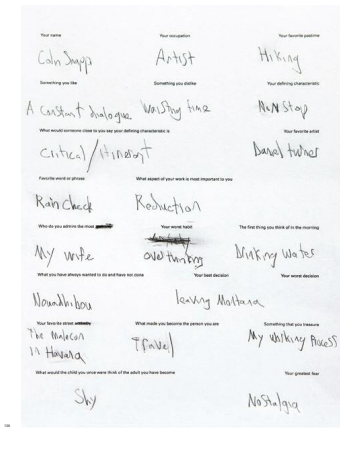 Your name Your occupation Your favorite pastime
Colin Artist Hiking
Something you like Something you dislike Your defining characteristic
A constant dialogue Wasting time Non Stop
What would someone close to you say your defining characteristic is Your favorite artist
Critical / Itinerant Daniel
Favorite word or phrase What aspect of your work is most important to you
Rain Check Reduction
Who do you admire the most Your worst habit The first thing you think of in the morning
My wife overthinking Drinking Water
What you have always wanted to do and have not done Your best decision Your worst decision
Nouadhibou leaving Montana
Your favorite street What made you become the person you are Something that you treasure
The Malecon Travel My walking Process
in Havana
What would the child you once were think of the adult you have become Your greatest fear
Shy Nostalgia